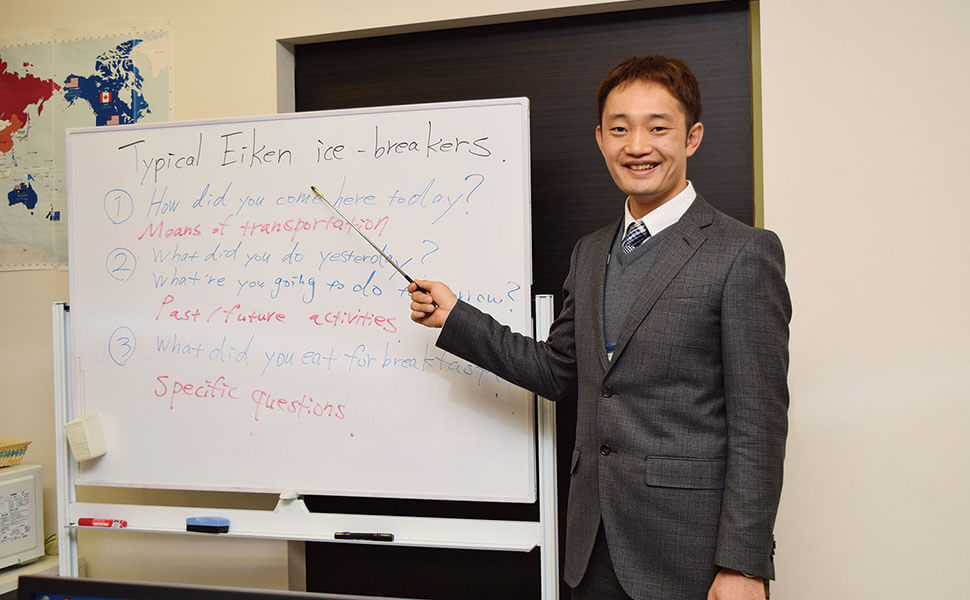 Typical Eiken ice-breakers.
① How did you come here today?
Means of transportation
② What did you do yesterday?
What're you going to do
Past/future activities
③ What did you eat for breakfast
Specific questions